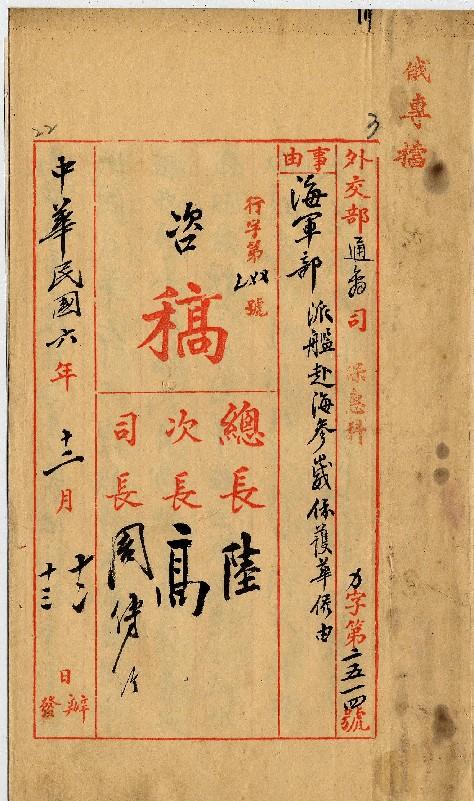 俄專檔
3
外交部通商司保惠科
力字第二五一四號
事由
海軍部 派艦赴海參崴保護華僑由
行字第 號
咨
稿
總長 陸
次長 高
司長 周傳
中華民國六年十二月
十二
十三
日
辦
發
22